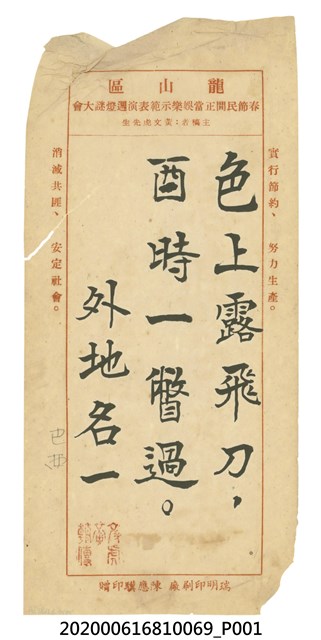 龍山區
春節民間正當娛樂示範表演週燈謎大會
實行節約、努力生產。
色上露飛刀，
酉時一瞥過。
外地名一
消滅共匪、安定社會。
巴西
瑞明印刷廠 陳應騏印贈
202000616810069_P001